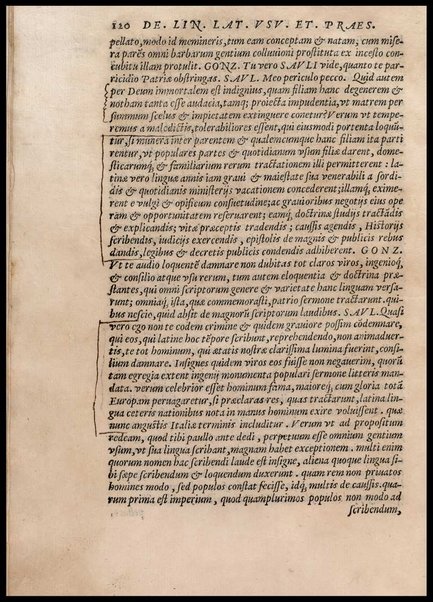 120 DE. LIN. LAT. VSV. ET. PRAES.
pellato, modo id memineris, tum eam conceptam & natam; cum mise-
ra parẽs omni barbarum gentium colluuioni prostituta ex incesto con-
cubitu illam protulit. GONZ. Tu vero SAVLI vide, quanto te par-
ricidio Patriæ obstringas. SAVL. Meo periculo pecco. Quid autem
per Deum immortalem est indignius, quam filiam hanc degenerem &
notham tanta esse audacia, tamq; proiecta impudentia, vt matrem per
summum scelus & impietatem extinguere conetur? Verum vt tempe-
remus a maledictis, tolerabiliores essent, qui eiusmodi portenta loquũ-
tur, si munera inter parentem & qualemcunque hanc filiam ita parti
rentur, vt populares partes & quotidianum vsum filiæ darent, dome-
sticarumq; & familiarium rerum tractationem illi permitterent: la-
tinæ vero linguæ annis iam graui & maiestate sua venerabili a sordi-
dis & quotidianis ministerijs vacationem concederent; illamq; exime-
rent e vulgi & opificum consuetudine; ac grauioribus negotijs eius ope
ram & opportunitatem reseruarent; eamq; doctrinæ studijs tractãdis
& explicandis; vitæ præceptis tradendis; caussis agendis, Historijs
scribendis, iudicijs exercendis, epistolis de magnis & publicis rebus
dandis, legibus & decretis publicis condendis adhiberent. GONZ.
Vt te audio loquentẽ damnare non dubitas tot claros viros, ingenioq;
& consilio atque vsu rerum, tum autem eloquentia & doctrina præ-
stantes, qui omni scriptorum genere & varietate hanc linguam versa-
runt; omniaq; ista, quæ commemorasti, patrio sermone tractarunt. qui-
bus nescio, quid absit de magnorũ scriptorum laudibus. SAVL. Quasi
vero ego non te codem crimine & quidem grauiore possim cõdemnare,
qui eos, qui latine hoc tẽpore scribunt, reprehendendo, non animaduer-
tis, te tot hominum, qui ætatis nostræ clarissima lumina fuerint, consi-
lium damnare. Insignes quidem viros eos fuisse non negauerim, quorũ
tam egregia extent ingenij monumenta populari sermone litteris man-
data. verum celebrior esset hominum fama, maiorq;, cum gloria totã
Europam peruagaretur, si præclaras res, quas tractarunt, latina lin-
gua ceteris nationibus nota in manus hominum exire voluissent. quæ
nunc angustis Italiæ terminis includitur. Verum vt ad propositum
redeam, quod tibi paullo ante dedi, perpetuum esse omnium gentium
vsum, vt sua lingua scribant, magnam habet exceptionem. multi enim
quorum nomen hac scribendi laude est insigne, aliena quoque lingua si-
bi sæpe scribendum & loquendum duxerunt. quam rem non priuatos
homines modo, sed populos constat fecisse, idq; multis de caussis. qua-
rum prima est imperium, quod quamplurimos populos non modo ad
scribendum,